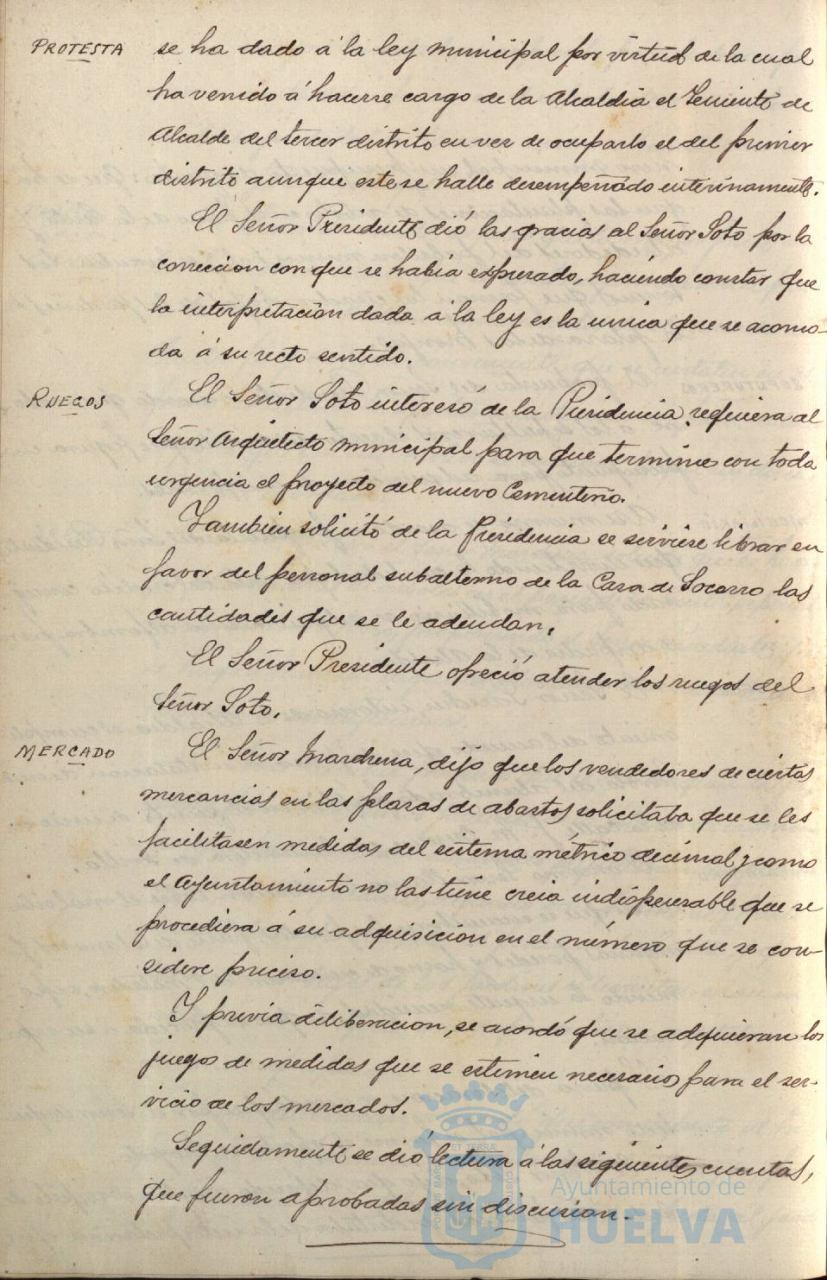 PROTESTA
se ha dado á la ley municipal por virtud de la cual
ha venido á hacerse cargo de la Alcaldia el Teniente de
Alcalde del tercer distrito en vez de ocuparlo el del primer
distrito aunque este se halle desempeñado interinamente.
El Señor Presidente dió las gracias al Señor Soto por la
coreccion con que se habia expresado, haciendo constar que
la interpretación dada á la ley es la unica que se acomo-
da á su recto sentido.
RUEGOS
El Señor Soto interesó de la Presidencia requiera al
Señor Arquitecto municipal para que termine con toda
urgencia el proyecto del nuevo Cementerio.
Tambien solicitó de la Presidencia se serviese librar en
favor del personal subalterno de la Casa de Socorro las
cantidades que se le adeudan.
El Señor Presidente ofreció atender los ruegos del
Señor Soto.
MERCADO
El Señor Marchena, dijo que los vendedores de ciertas
mercancias en las plazas de abastos solicitaba que se les
facilitasen medidas del sistema métrico decimal y como
el Ayuntamiento no las tiene creia indispensable que se
procediera á su adquisición en el número que se con-
sidere preciso.
Y previa deliberacion, se acordó que se adquieran los
juegos de medidas que se estimen necesarios para el ser-
vicio de los mercados.
Seguidamente se dió lectura á las siguientes cuentas,
que fueron aprobadas sin discusion.
Ayuntamiento de
HUELVA